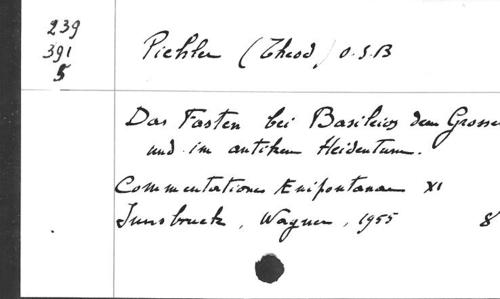 239
391
5
Pichler (Theod) O.S.B
Das Fasten bei Basileios dem Grosse
und im antiken Heidentum.
Commentationes Ænipontanae XI
Innsbruck, Wagner, 1955 8